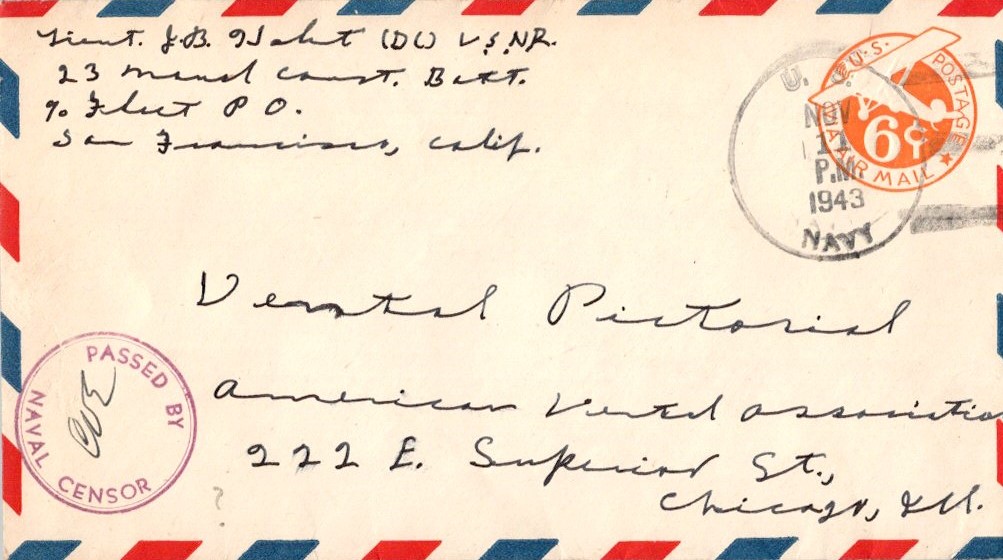 Lieut. J.B. (DC) U.S.N.R.
23 Naval Const. Batt.
% Fleet P O.
San Francisco, Calif.
U.S. POSTAGE
6¢
VIA AIR MAIL
U. S.
NOV
11
P.M.
1943
NAVY
Dental Pictorial
American Dental Associatio
222 E. Superior St.,
Chicago, Ill.
PASSED BY
NAVAL CENSOR
?